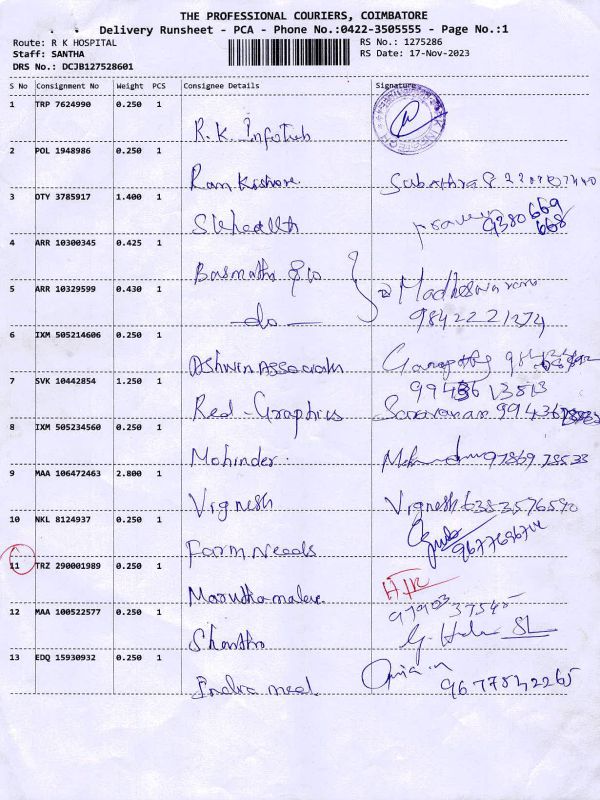 THE PROFESSIONAL COURIERS, COIMBATORE
Delivery Runsheet - PCA - Phone No.:0422-3505555 - Page No.:1
Route: R K HOSPITAL
RS No.: 1275286
Staff: SANTHA
RS Date: 17-Nov-2023
DRS No.: DCJB127528601
S No Consignment No Weight PCS Consignee Details Signature
1 TRP 7624990 0.250 1
R.K. Infotech
2 POL 1948986 0.250 1
Ram Kishore
3 OTY 3785917 1.400 1
9380669
668
4 ARR 10300345 0.425 1
5 ARR 10329599 0.430 1
-do- Madheswaran
9842221274
6 IXM 505214606 0.250 1
Ashwin Associats
7 SVK 10442854 1.250 1
9943613513
Red-Graphics Saravanan
8 IXM 505234560 0.250 1
Mohinder. 97869 78533
9 MAA 106472463 2.800 1
Vignesh Vignesh 6383576590
10 NKL 8124937 0.250 1
Farm Needs
11 TRZ 290001989 0.250 1
Marudhamalai
12 MAA 100522577 0.250 1
Shantha
13 EDQ 15930932 0.250 1
9677542265